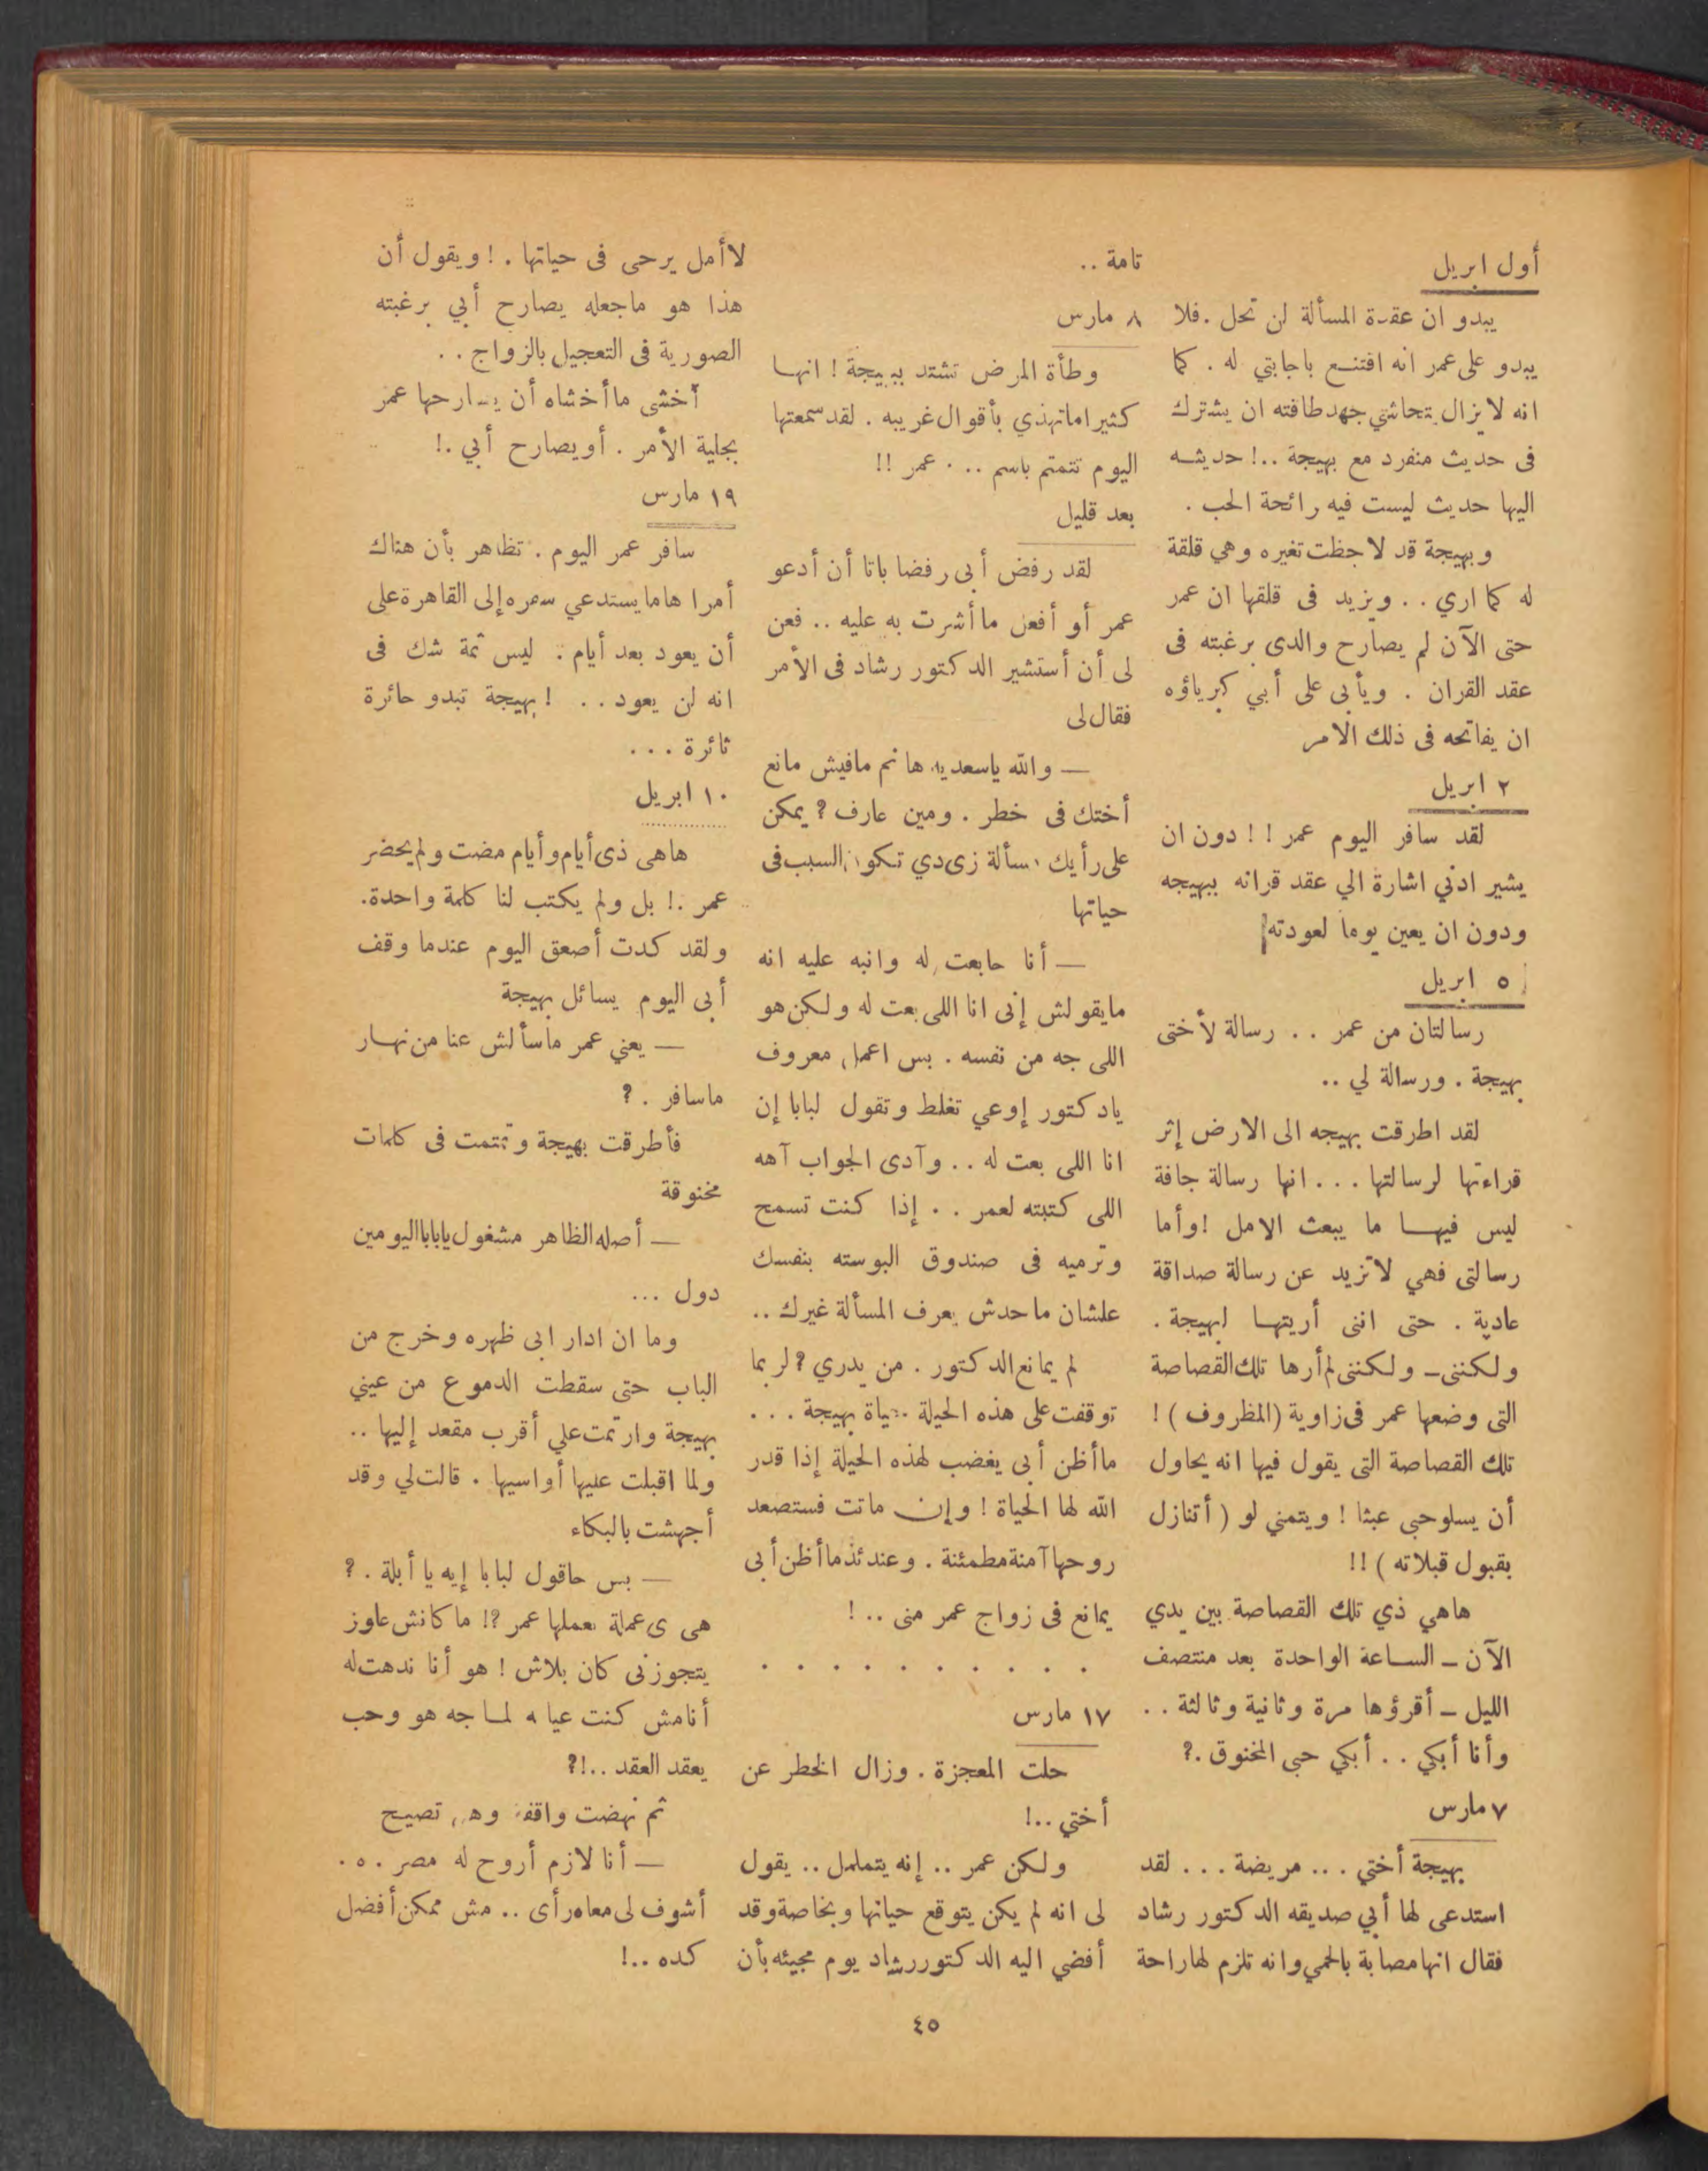 أول ابريل
يبدو ان عقدة المسألة لن تحل . فلا
يبدو على عمر انه اقتنـع باجابتي له . كما
انه لا يزال يتحاشي جهد طاقته ان يشترك
فى حديث منفرد مع بهيجة ..! حديثـه
اليها حديث ليست فيه رائحة الحب .
وبهيجة قد لاحظت تغيره وهي قلقة
له كما اري . . ويزيد فى قلقها ان عمر
حتى الآن لم يصارح والدى برغبته فى
عقد القران . ويأبى على أبي كبرياؤه
ان يفاتحه فى ذلك الامر
٢ ابريل
لقد سافر اليوم عمر ! ! دون ان
يشير ادني اشارة الي عقد قرانه ببهيجه
ودون ان يعين يوما لعودته
٥ ابريل
رسالتان من عمر . . رسالة لأختى
بهيجة . ورسالة لي ..
لقد اطرقت بهيجه الى الارض إثر
قراءتها لرسالتها . . . انها رسالة جافة
ليس فيهـا ما يبعث الامل ! وأما
رسالتى فهي لا تزيد عن رسالة صداقة
عادية . حتى اننى أريتهـا لبهيجة .
ولكننى ــ ولكننى لم أرها تلك القصاصة
التى وضعها عمر فى زاوية (المظروف ) !
تلك القصاصة التى يقول فيها انه يحاول
أن يسلو حبى عبثا ! ويتمني لو ( أتنازل
بقبول قبلاته ) !!
هاهي ذي تلك القصاصة بين يدي
الآن ــ الساعة الواحدة بعد منتصف
الليل ــ أقرؤها مرة وثانية وثالثة . .
وأنا أبكي . . أبكي حبى المخنوق .؟
٧ مارس
بهيجة أختي . . . مريضة . . . لقد
استدعى لها أبي صديقه الدكتور رشاد
فقال انها مصابة بالحمي وانه تلزم لها راحة
تامة ..
٨ مارس
وطأة المرض تشتد ببهيجة ! انهـا
كثيرا ما تهذي بأقوال غريبه . لقد سمعتها
اليوم تتمتم باسم .. . عمر !!
بعد قليل
لقد رفض أبى رفضا باتا أن أدعو
عمر أو أفعل ما أشرت به عليه .. فعن
لى أن أستشير الدكتور رشاد فى الأمر
فقال لى
ــ والله ياسعديه هانم مافيش مانع
أختك فى خطر . ومين عارف ؟ يمكن
على رأيك مسألة زى دي تكون السبب فى
حياتها
ــ أنا حابعت له وانبه عليه انه
مايقولش إنى انا اللى بعت له ولكن هو
اللى جه من نفسه . بس اعمل معروف
يادكتور إوعي تغلط وتقول لبابا إن
انا اللى بعت له .. وآدى الجواب آهه
اللى كتبته لعمر . . إذا كنت تسمح
وترميه فى صندوق البوسته بنفسك
علشان ماحدش يعرف المسألة غيرك ..
لم يمانع الدكتور . من يدري ؟ لربما
توقفت على هذه الحيلة حياة بهيجة . . .
ما أظن أبى يغضب لهذه الحيلة إذا قدر
الله لها الحياة ! وإن ماتت فستصعد
روحها آمنة مطمئنة . وعندئذ ما أظن أبى
يمانع فى زواج عمر منى .. !
. . . . . . . . . .
١٧ مارس
حلت المعجزة . وزال الخطر عن
أختي ..!
ولكن عمر .. إنه يتململ .. يقول
لى انه لم يكن يتوقع حياتها وبخاصة وقد
أفضي اليه الدكتور رشاد يوم مجيئه بأن
لا أمل يرحى فى حياتها . ! ويقول أن
هذا هو ماجعله يصارح أبي برغبته
الصورية فى التعجيل بالزواج . .
أخشى ما أخشاه أن يصارحها عمر
بجلية الأمر . أو يصارح أبي .!
١٩ مارس
سافر عمر اليوم . تظاهر بأن هناك
أمرا هاما يستدعي سفره إلى القاهرة على
أن يعود بعد أيام . ليس ثمة شك فى
انه لن يعود . . ! بهيجة تبدو حائرة
ثائرة . . .
١٠ ابريل
هاهى ذى أيام وأيام مضت ولم يحضر
عمر .! بل ولم يكتب لنا كلمة واحدة.
ولقد كدت أصعق اليوم عندما وقف
أبى اليوم يسائل بهيجة
ــ يعني عمر ماسألش عنا من نهـار
ماسافر . ؟
فأطرقت بهيجة وتمتمت فى كلمات
مخنوقة
ــ أصله الظاهر مشغول يابابا اليومين
دول ...
وما ان ادار ابى ظهره وخرج من
الباب حتى سقطت الدموع من عيني
بهيجة وارتمت علي أقرب مقعد إليها ..
ولما اقبلت عليها أواسيها . قالت لي وقد
أجهشت بالبكاء
ــ بس حاقول لبابا إيه يا أبلة . ؟
هى دى عملة يعملها عمر ؟! ماكانش عاوز
يتجوزنى كان بلاش ! هو أنا ندهت له
أنا مش كنت عيانه لمـا جه هو وحب
يعقد العقد ..!؟
ثم نهضت واقفة وهى تصيح
ــ أنا لازم أروح له مصر . ه .
أشوف لى معاه رأى .. مش ممكن أفضل
كده ..!
٤٥